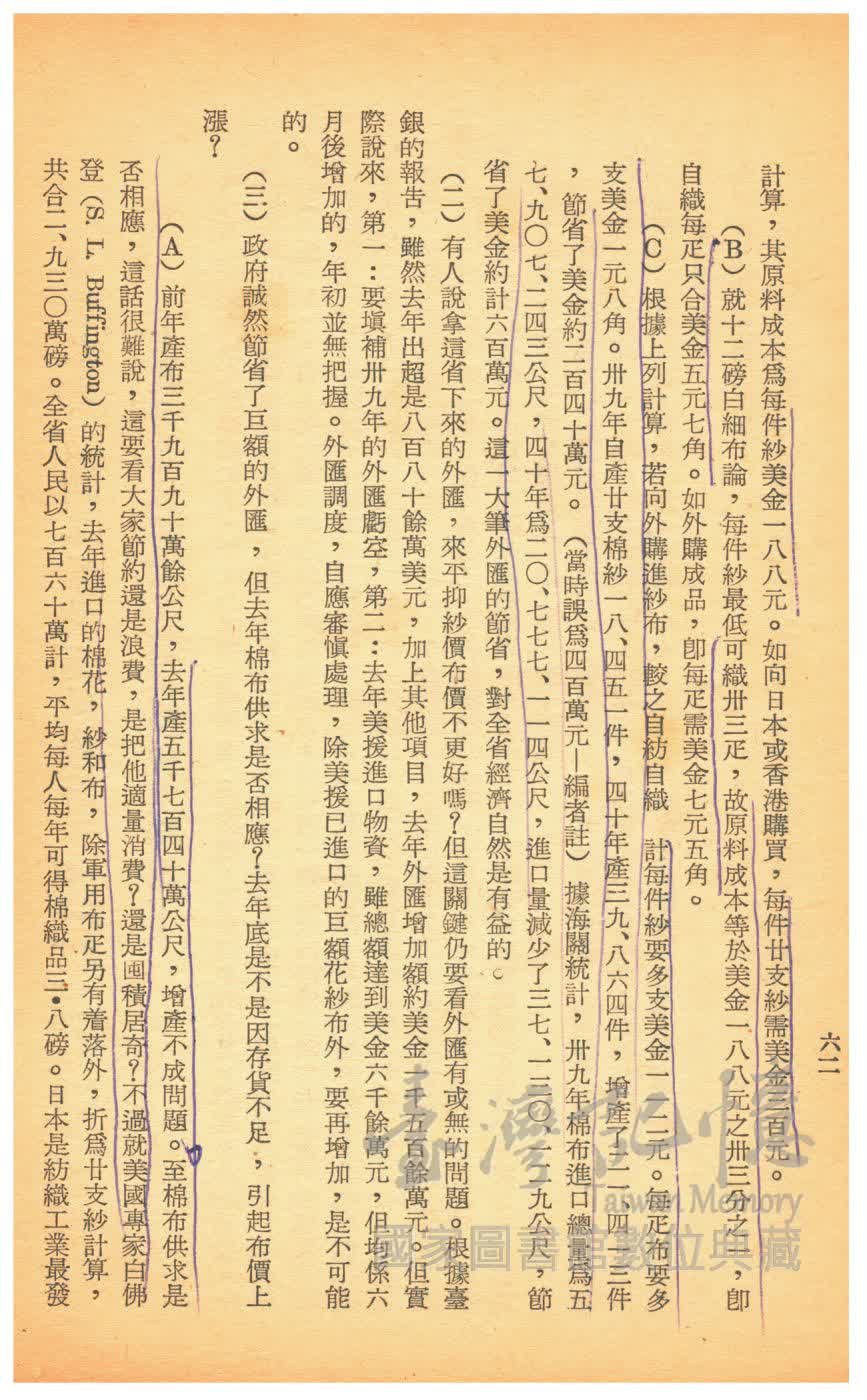 六二
計算，其原料成本爲每件紗美金一八八元。如向日本或香港購買，每件廿支紗需美金三百元。
（B）就十二磅白細布論，每件紗最低可織卅三疋，故原料成本等於美金一八八元之卅三分之一，卽
自織每疋只合美金五元七角。如外購成品，卽每疋需美金七元五角。
（C）根據上列計算，若向外購進紗布，較之自紡自織　計每件紗要多支美金一一二元。每疋布要多
支美金一元八角。卅九年自產廿支棉紗一八、四五一件，四十年產三九、八六四件，增產了二一、四一三件
，節省了美金約二百四十萬元。（當時誤爲四百萬元—編者註）據海關統計，卅九年棉布進口總量爲五
七、九〇七、二四三公尺，四十年爲二〇、七七七、一一四公尺，進口量減少了三七、一三〇、一二九公尺，節
省了美金約計六百萬元。這一大筆外匯的節省，對全省經濟自然是有益的。
（二）有人說拿這省下來的外匯，來平抑紗價布價不更好嗎？但這關鍵仍要看外匯有或無的問題。根據臺
銀的報告，雖然去年出超是八百八十餘萬美元，加上其他項目，去年外匯增加額約美金一千五百餘萬元。但實
際說來，第一：要塡補卅九年的外匯虧空，第二：去年美援進口物資，雖總額達到美金六千餘萬元，但均係六
月後增加的，年初並無把握。外匯調度，自應審愼處理，除美援已進口的巨額花紗布外，要再增加，是不可能
的。
（三）政府誠然節省了巨額的外匯，但去年棉布供求是否相應？去年底是不是因存貨不足，引起布價上
漲？
（A）前年產布三千九百九十萬餘公尺，去年產五千七百四十萬公尺，增產不成問題。至棉布供求是
否相應，這話很難說，這要看大家節約還是浪費，是把他適量消費？還是囤積居奇？不過就美國專家白佛
登（S. L. Buffington）的統計，去年進口的棉花，紗和布，除軍用布疋另有着落外，折爲廿支紗計算，
共合二、九三〇萬磅。全省人民以七百六十萬計，平均每人每年可得棉織品三•八磅。日本是紡織工業最發
臺灣記憶
Taiwan Memory
國家圖書館數位典藏